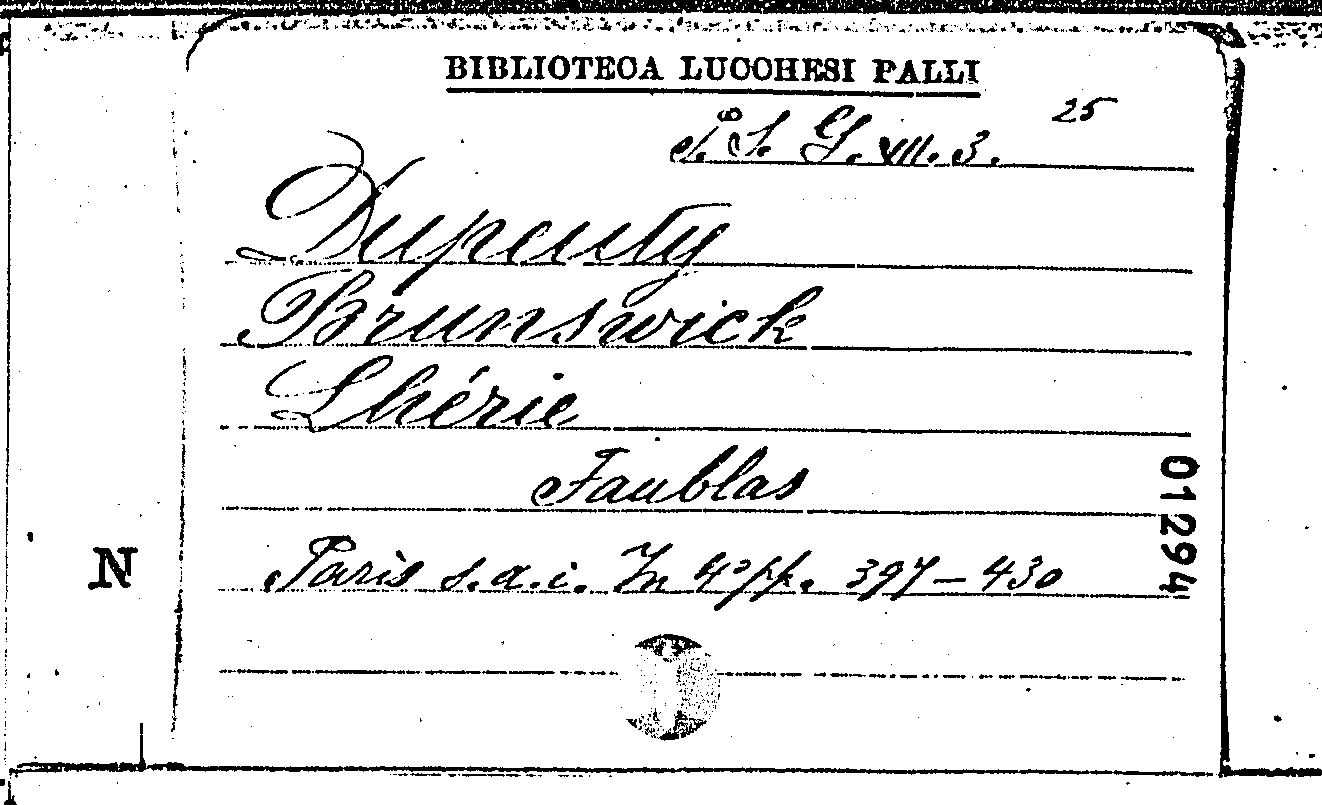 BIBLIOTECA LUCCHESI PALLI
G. VIII. 3. 25
Dupeuty
Brunswick
Lhérie
Faublas
Paris s.a.i. In 4° pp. 397-430
N
01294